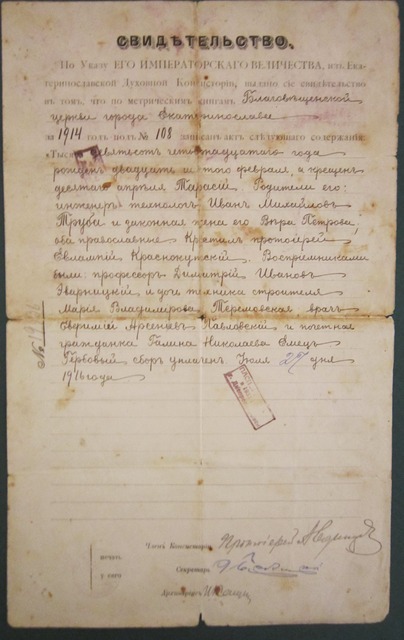 СВИДѢТЕЛЬСТВО.
По Указу ЕГО ИМПЕРАТОРСКАГО ВЕЛИЧЕСТВА, изъ Ека-
теринославской Духовной Консисторіи, выдано сіе свидѣтельство
въ томъ, что по метрическимъ книгамъ Благовѣщенской
церкви города Екатеринослава
за 1914 годъ подъ № 108 записанъ актъ слѣдующаго содержанія:
«Тысяча девятьсотъ четырнадцатаго года
рожденъ двадцать шестого февраля, а крещенъ
десятаго апрѣля Тарасій. Родители его:
инженеръ технологъ Иванъ Михайловъ
Труба и законная жена его Вѣра Петрова,
оба православные. Крестилъ протоіерей
Евлампій Краснокутскій. Воспріемниками
были: профессоръ Димитрій Ивановъ
Эварницкій и дочь техника строителя
Марія Владимирова Терлмовская врачъ
Евфимій Арсеніевъ Павловскій и почетная
гражданка Галина Николаева Эмецъ
Гербовый сборъ уплаченъ. Іюля 27 дня
1916 года
№ 19226
Членъ Консисторіи, Протоіерей
печать
Секретарь
у сего
Архиваріусъ